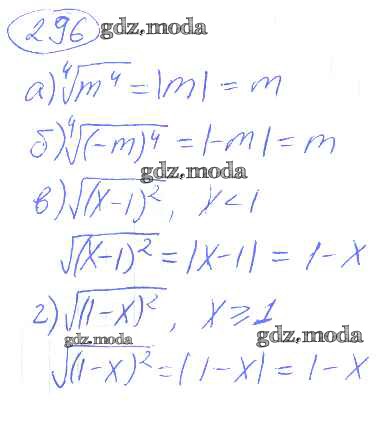 296 gdz.moda
а) ⁴√m⁴ = |m| = m
б) ⁴√(-m)⁴ = |-m| = m
gdz.moda
в) √(x-1)², x<1
√(x-1)² = |x-1| = 1-x
г) √(1-x)², x≥1
gdz.moda gdz.moda
√(1-x)² = |1-x| = 1-x